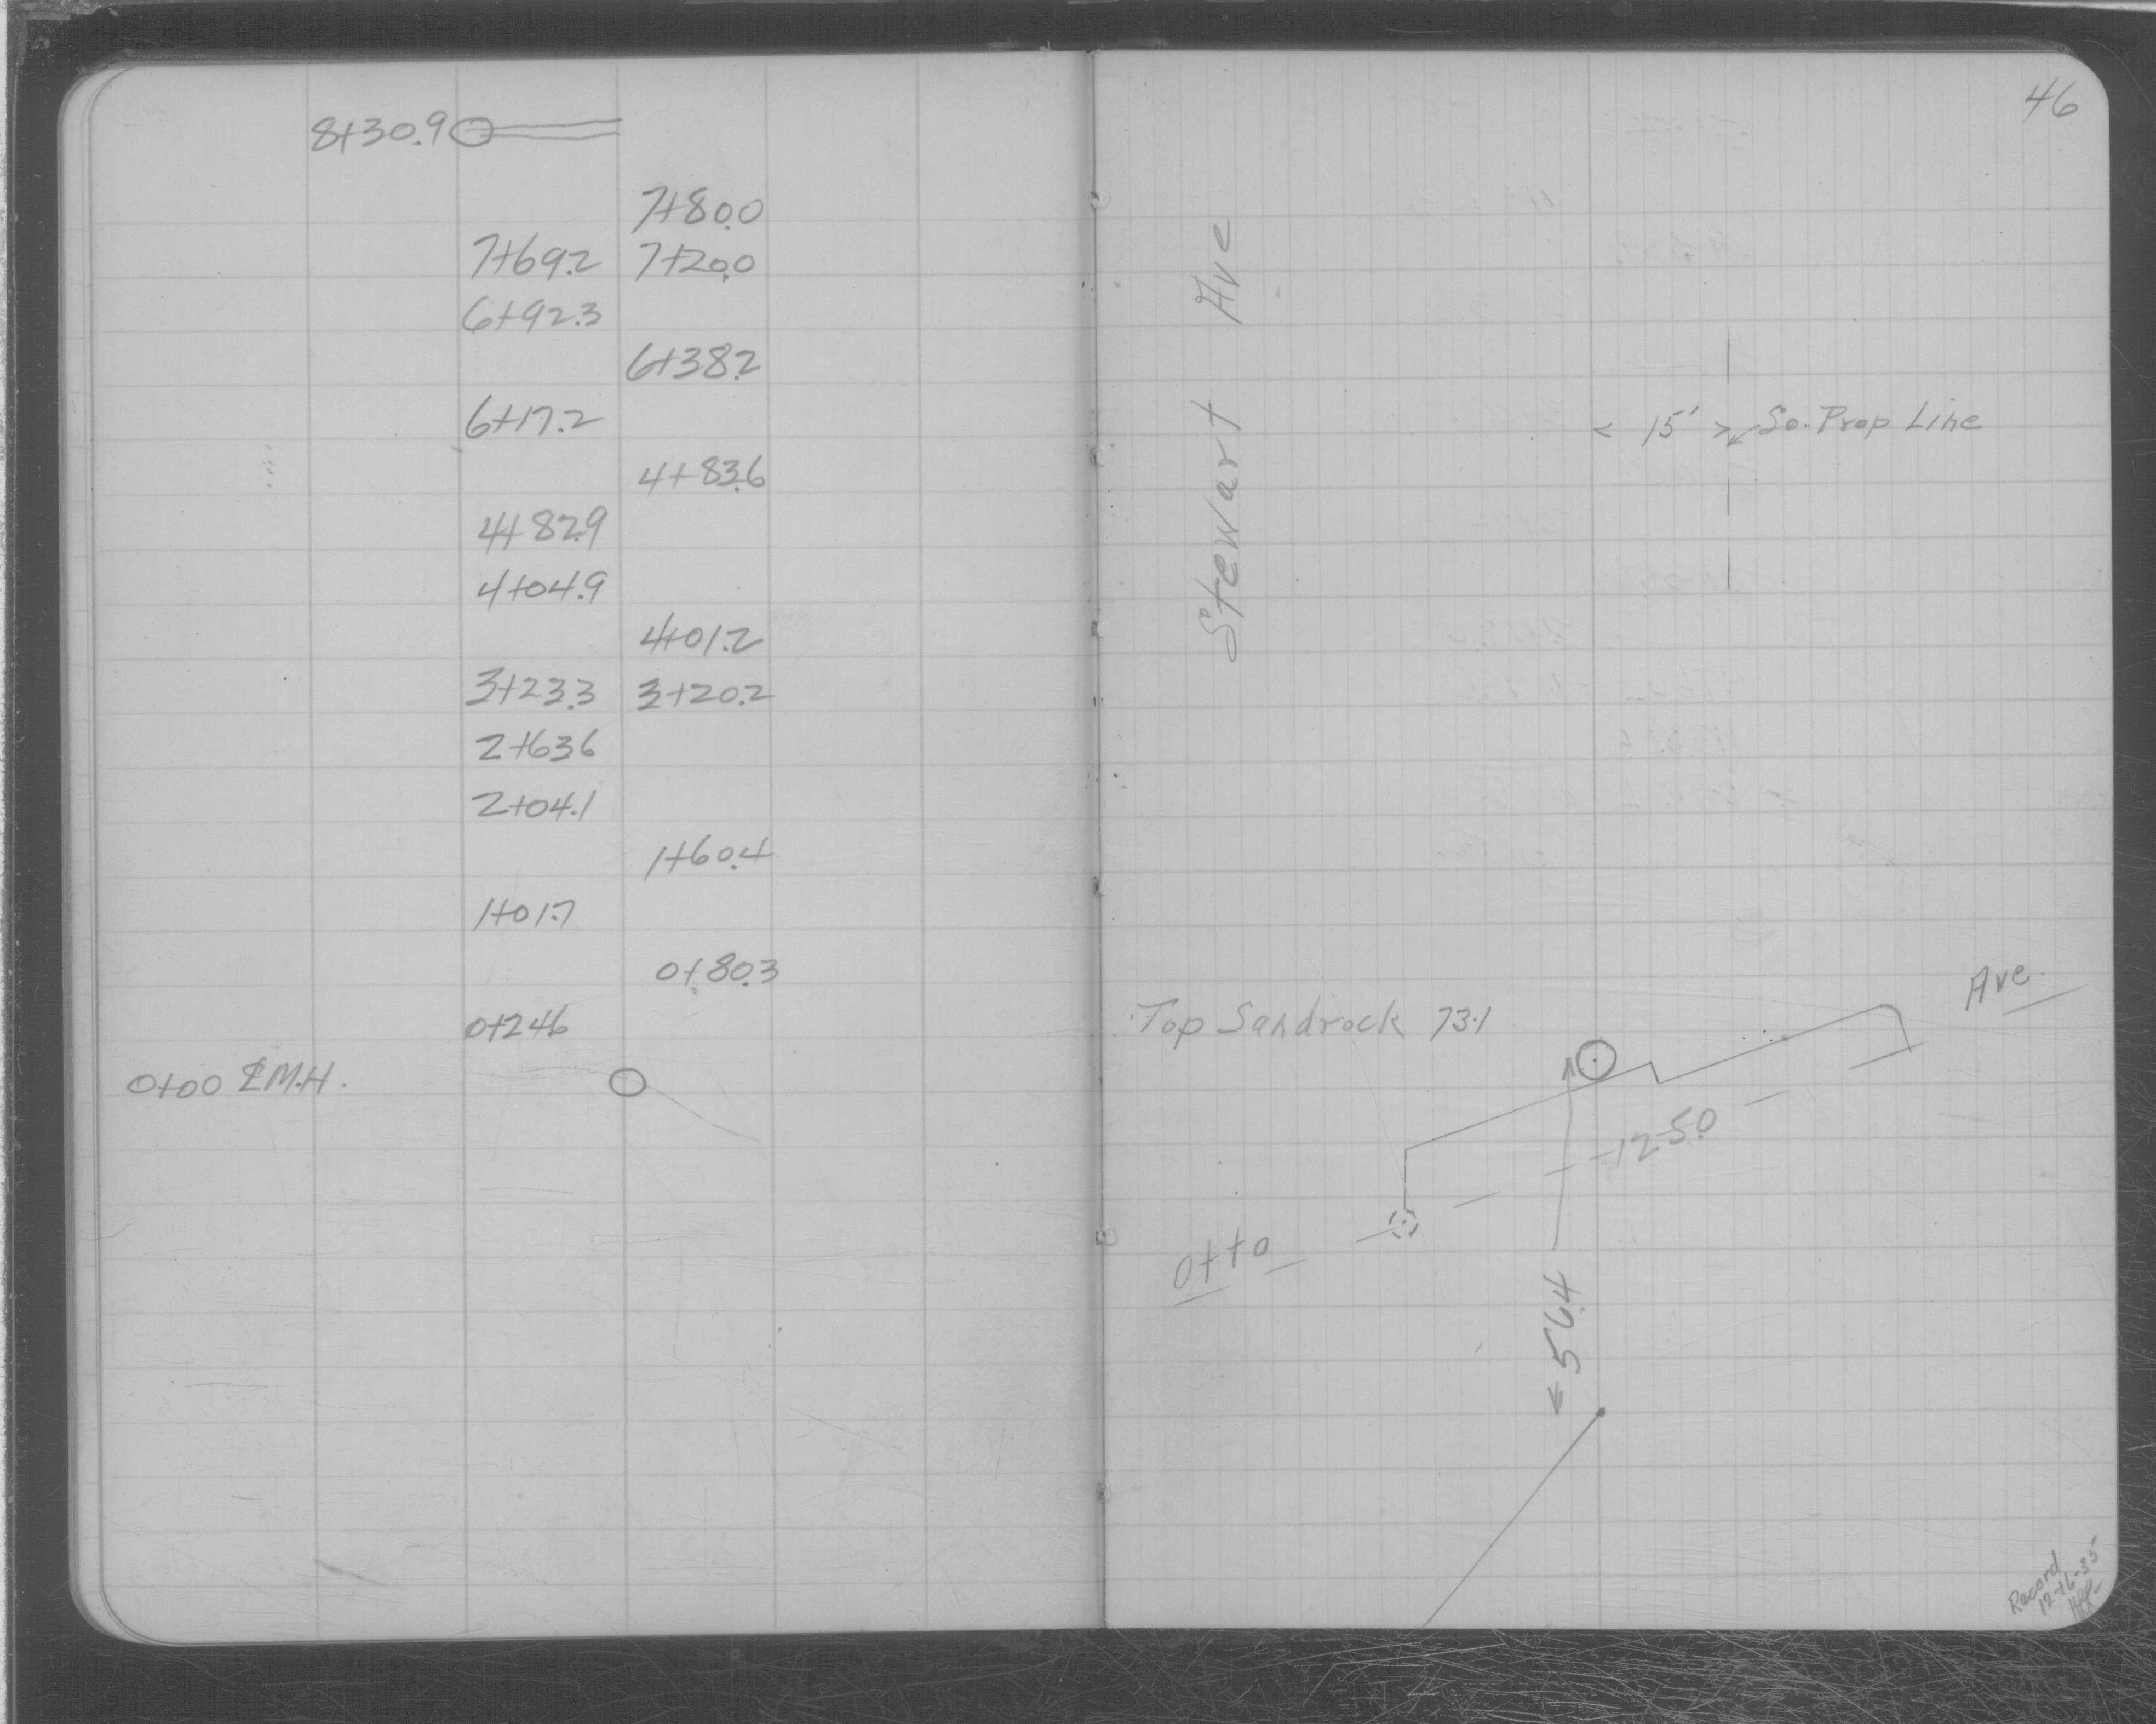 8+30.9
7+80.0
7+69.2 7+20.0
6+92.3
6+38.2
6+17.2
4+83.6
4+82.9
4+04.9
4+01.2
3+23.3 3+20.2
2+63.6
2+04.1
1+60.4
1+01.7
0+80.3
0+24.6
0+00 ℄ M.H.
46
Stewart Ave
15' So. Prop Line
Top Sandrock 73.1
Otto Ave.
125.0
56.4
Record
12-16-35